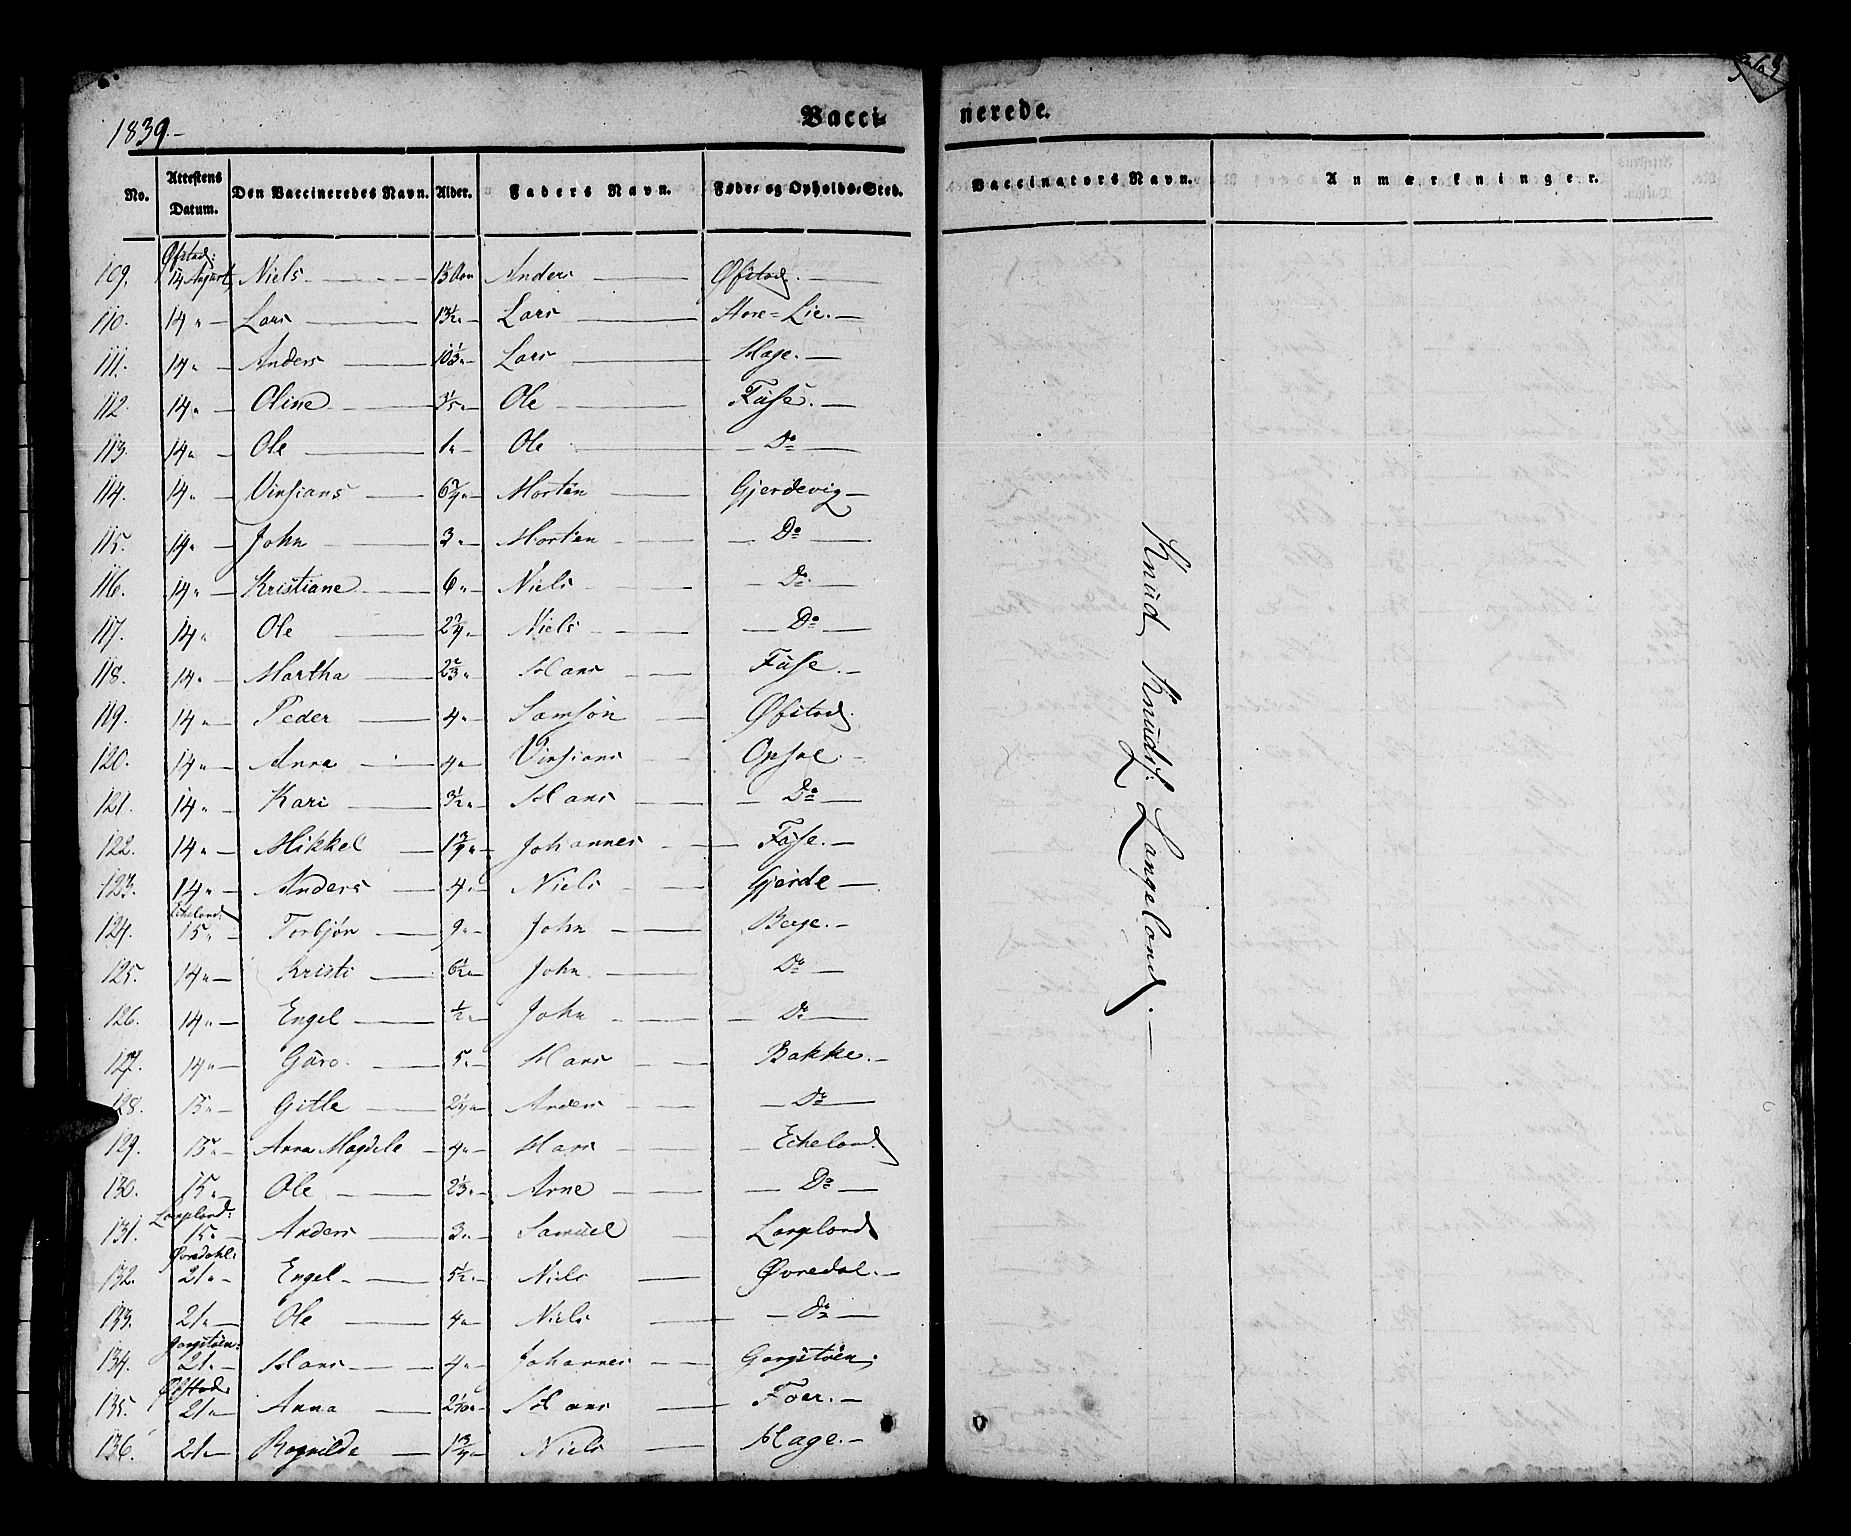 1839.-
Vaccinerede.
No. Attestens Datum. Den Vaccineredes Navn. Alder. Faders Navn. Føde- og Opholds-Sted. Vaccinators Navn. Anmærkninger.
Øfstad:
109. 14 August Niels Anders Øfstad.
110. 14 " Lars 13½ " Lars Store-Lie.
111. 14 " Anders 10⅓ " Lars Hage.
112. 14 " Oline Ole Füse.
113. 14 " Ole 1 " Ole Do
114. 14 " Vinsians 6¾ " Morten Gjerdevig
115. 14 " John 3 " Morten Do
116. 14 " Kristiane 6 " Niels Do
117. 14 " Ole 2¾ " Niels Do
118. 14 " Martha 2⅔ " Hans Füse.
119. 14 " Peder 4 " Samson Øfstad.
120. 14 " Anna 4 " Vinsians Opsal.
121. 14 " Kari 3½ " Hans Do
122. 14 " Mikkel 1¾ " Johannes Füse.
123. 14 " Anders 4 " Niels Gjerde
Echeland:
124. 15 " Torbjør 9 " John Berge.
125. 14 " Kristi 6½ " John Do
126. 14 " Engel ½ " John Do
127. 14 " Güro 5 " Hans Bakke.
128. 15 " Gitle 2¼ " Anders Do
129. 15 " Anna Magdela 4 " Hans Echeland.
130. 15 " Ole 2⅓ " Arne Do
Langeland:
131. 15 " Anders 3 " Samüel Langeland
Øvredahl:
132. 21 " Engel 5½ " Niels Øvredal.
133. 21 " Ole 4 " Niels Do
Gangstøen:
134. 21 " Hans 4 " Johannes Gangstøen.
Øfstad:
135. 21 " Anna Hans Foer.
136. 21 " Ragnilde 1¾ " Niels Hage.
Knüd Knüds: Langeland.